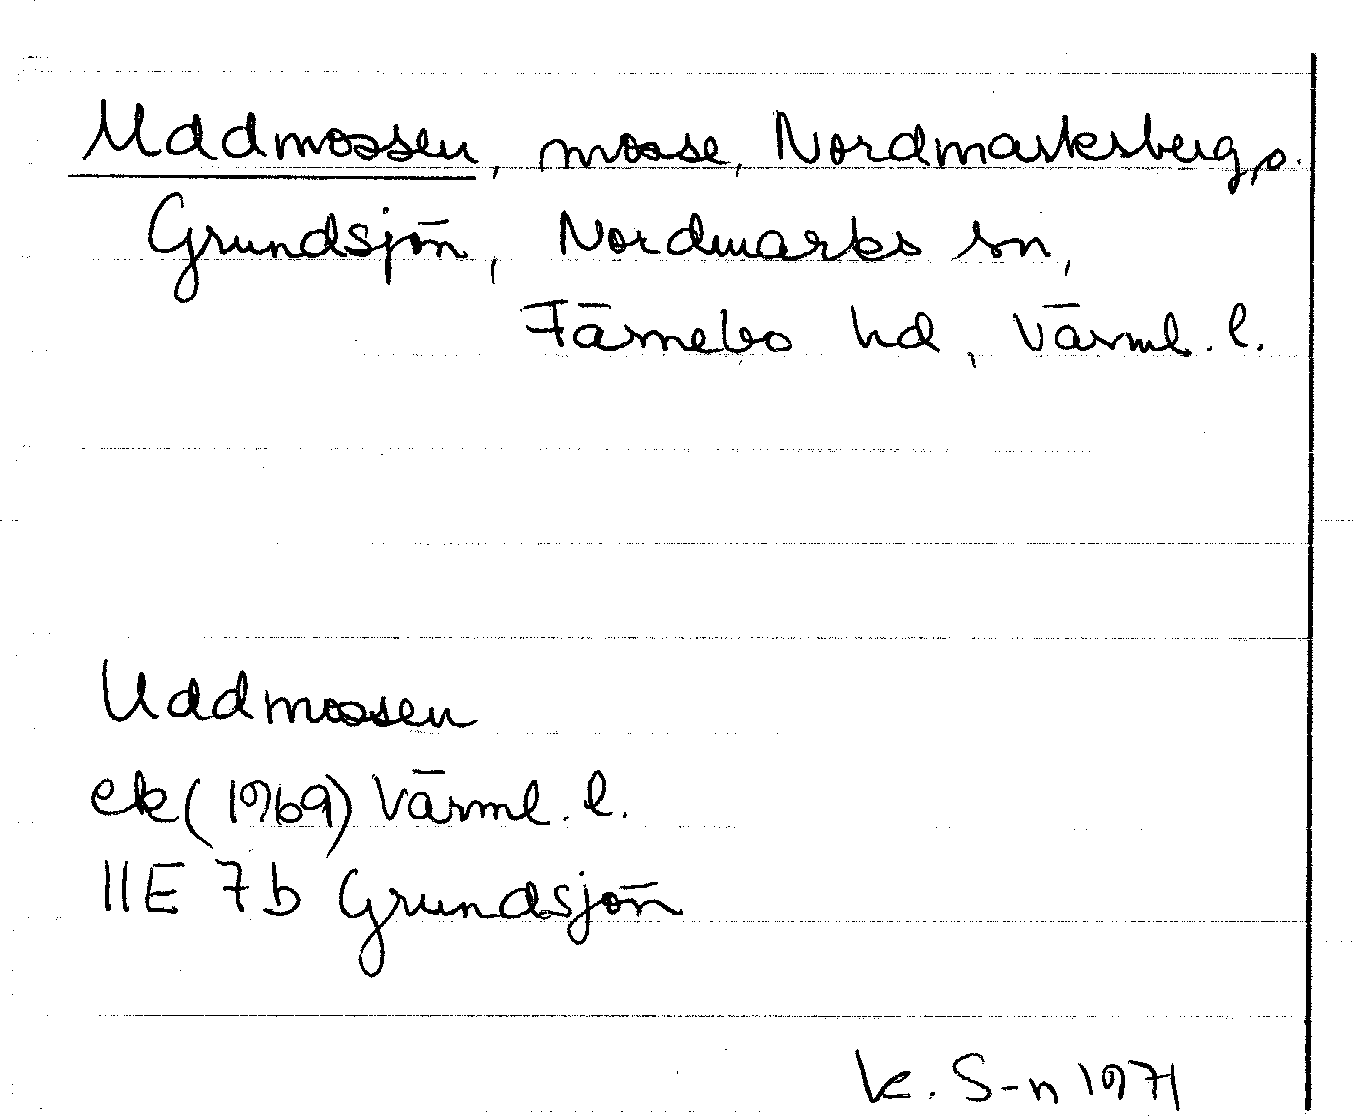 Uddmossen, mosse, Nordmarksberg,o.
Grundsjön, Nordmarks sn,
Färnebo hd, Värml. l.
Uddmossen
ek(1969) Värml. l.
11E 7b Grundsjön
K. S-n 1971